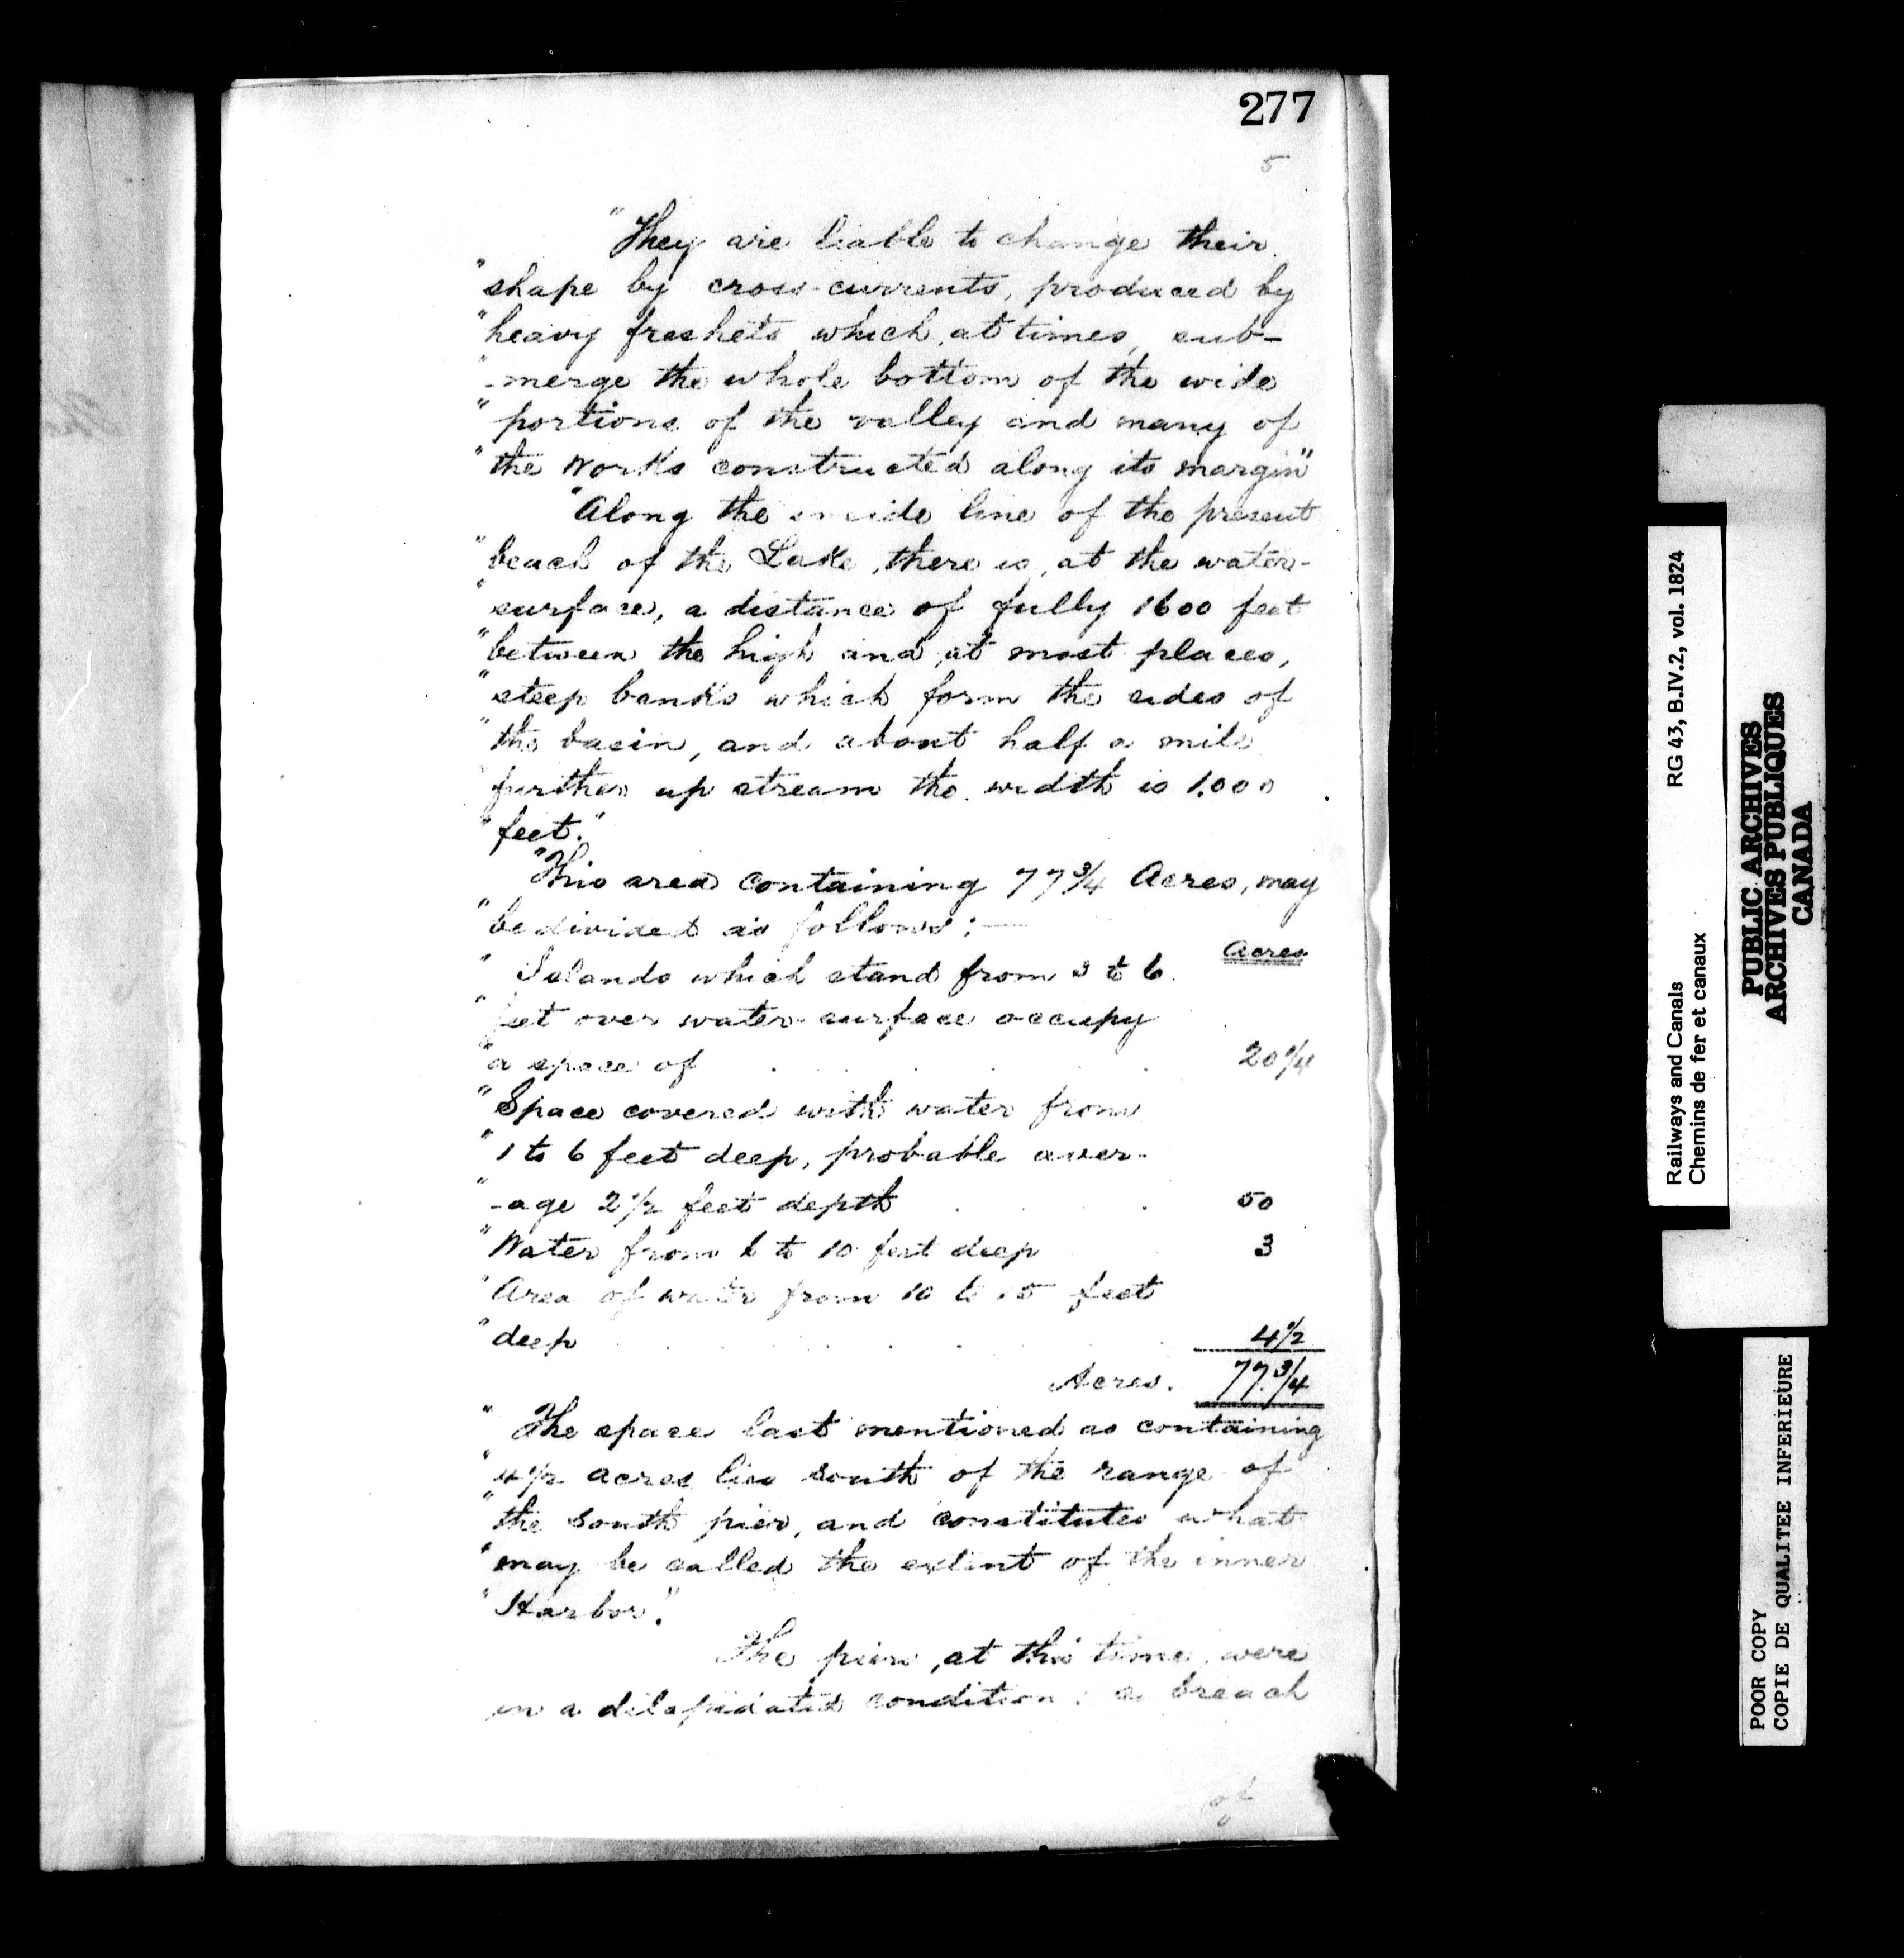 277
5
"They are liable to change their
"shape by cross-currents, produced by
"heavy freshets which, at times, sub-
"-merge the whole bottom of the wide
"portions of the valley and many of
"the Works constructed along its margin"
"Along the inside line of the present
"beach of the Lake, there is, at the water-
"surface, a distance of fully 1600 feet
"between the high and, at most places,
"steep banks which form the sides of
"the basin, and about half a mile
"further up stream the width is 1.000
"feet."
"This area containing 77 3/4 Acres, may
"be divided as follows:—
Acres
"Islands which stand from 3 to 6
"feet over water-surface occupy
"a space of . . . . 20 1/4
"Space covered with water from
"1 to 6 feet deep, probable aver-
"-age 2 1/2 feet depth . . 50
"Water from 6 to 10 feet deep 3
"Area of water from 10 to 15 feet
"deep . . . . . 4 1/2
Acres. 77.3/4
"The space last mentioned as containing
"4 1/2 acres lies south of the range of
"the South pier, and constitutes what
"may be called the extent of the inner
"Harbor."
The piers, at this time, were
in a dilapidated condition: a breach
of
RG 43, B.IV.2, vol. 1824
Railways and Canals
Chemins de fer et canaux
PUBLIC ARCHIVES
ARCHIVES PUBLIQUES
CANADA
POOR COPY
COPIE DE QUALITEE INFERIEURE